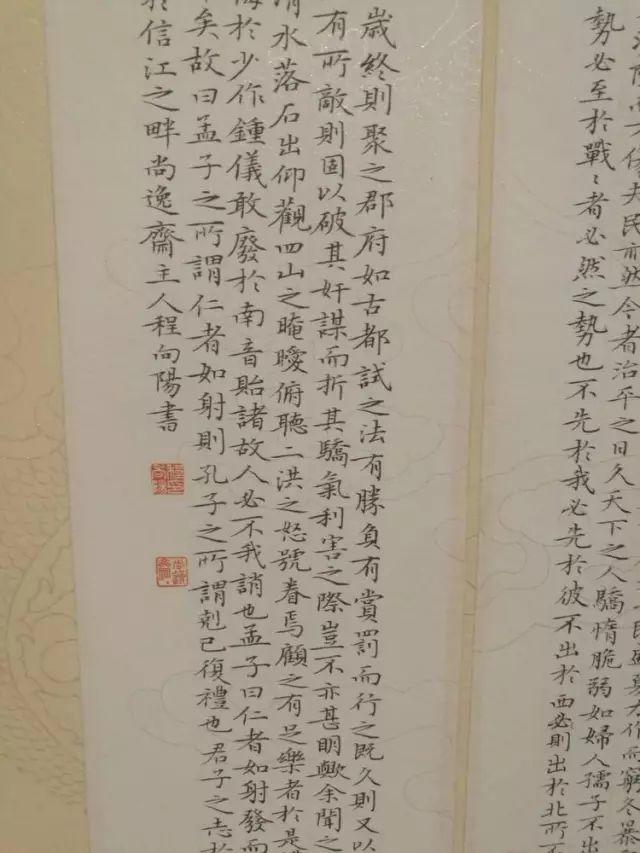 夫民亦然今者治平之日久天下之人驕惰脆弱如婦人孺子不出
勢必至於戰〻者必然之勢也不先於我必先於彼不出於西必則出於北所不
歲終則聚之郡府如古都試之法有勝負有賞罰而行之既久則又以
有所敵則固以破其奸謀而折其驕氣利害之際豈不亦甚明歟余聞之
清水落石出仰觀四山之晻曖俯聽二洪之怒號眷焉顧之有足樂者於是
悔於少作鍾儀敢廢於南音貽諸故人必不我誚也孟子曰仁者如射發而
矣故曰孟子之所謂仁者如射則孔子之所謂剋己復禮也君子之志於
於信江之畔尚逸齋主人程向陽書